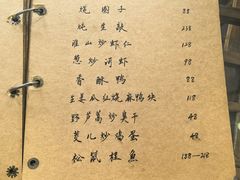 烧圈子 88
炖生敲 238
淮山炒虾仁 138
葱炒河虾 98
香酥鸭 88
生姜瓜红烧麻鸭块 118
野芦蒿炒臭干 48
芙儿炒鸡蛋 48
松鼠桂鱼 138—218